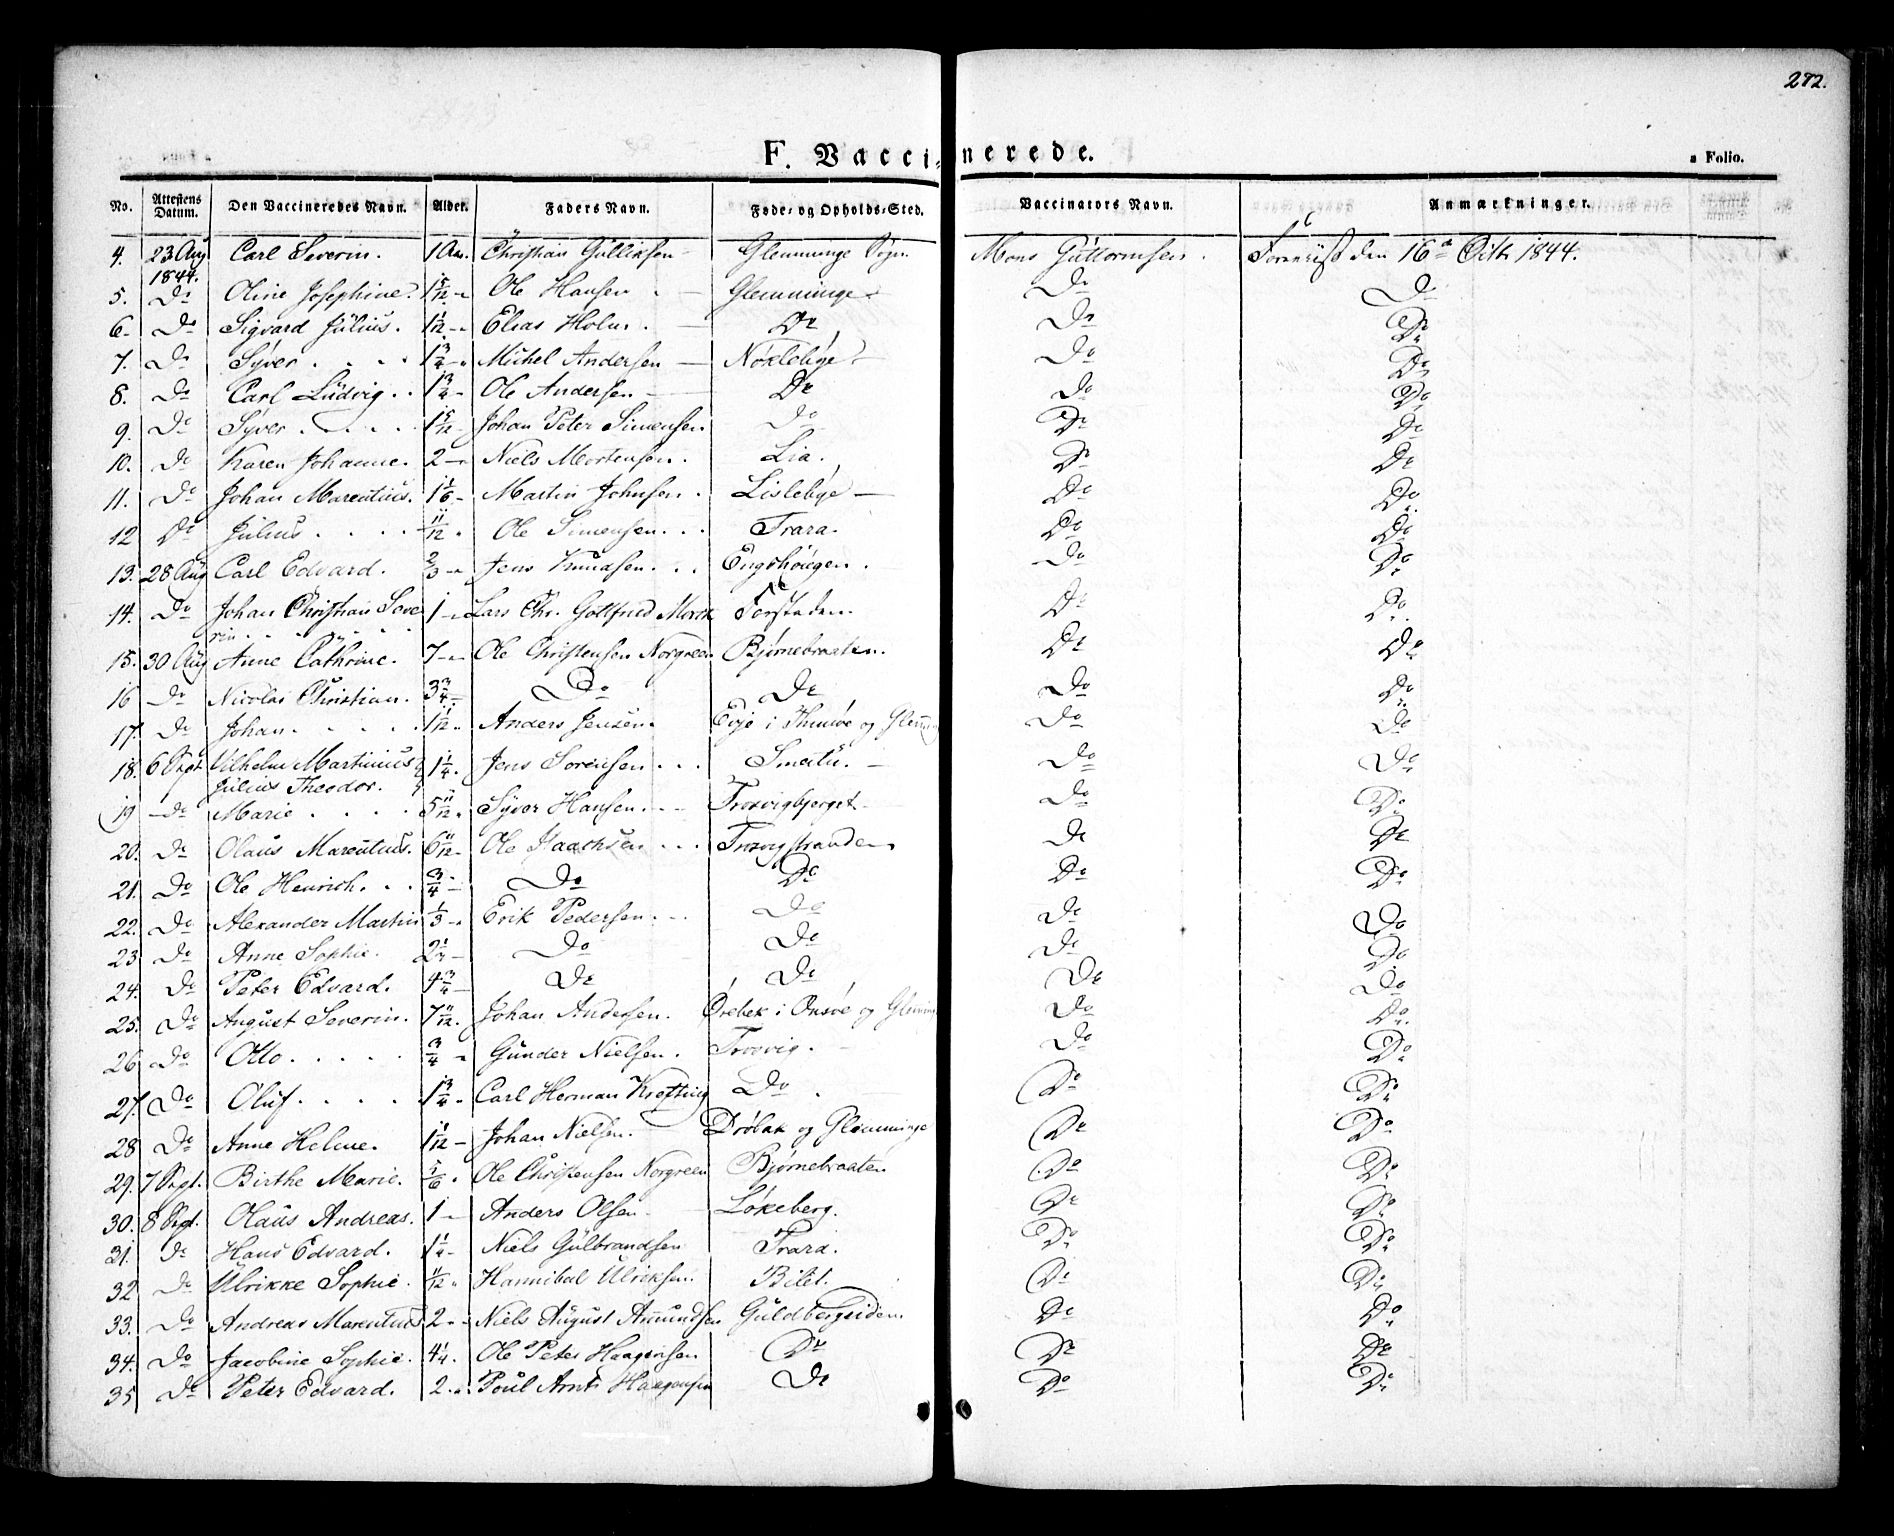 272.
F. Vaccinerede.
a Folio.
No. Attestens Datum. Den Vaccineredes Navn. Alder. Faders Navn. Føde- og Opholds-Sted. Vaccinators Navn. Anmærkninger.
4. 23 Aug 1844. Carl Severin. 1 Aar. Christian Gulliksen Glemminge Sogn. Mons Guttormsen. den 16 1844.
5. Do Oline Josephine. 1 5/12 Ole Hansen Glemminge Do Do
6 Do Sigvard Julius. 1 1/12 Elias Holm. Do Do Do
7. Do Syver 1 3/4 Michel Andersen Nøklebye Do Do
8. Do Carl Ludvig 1 3/4 Ole Andersen Do Do Do
9. Do Syver 1 5/12 Johan Peter Simensen Do Do Do
10. Do Karen Johanne. 2 Niels Mortensen. Lia. Do Do
11. Do Johan Marentius. 1 1/6 Martin Johnsen. Lislebye Do Do
12 Do Julius 11/12 Ole Simensen Trara. Do Do
13. 28 Aug Carl Edvard. 2/3 Jens Knudsen Engehougen. Do Do
14. Do Johan Christian Seve
rin 1 Lars Chr. Gottfried Forstaden. Do Do
15. 30 Aug Anne Cathrine. 7 Ole Christensen Norgreen Bjørnebraaten. Do Do
16 Do Nicolai Christian. 3 3/4 Do Do Do Do
17. Do Johan 1 1/12 Anders Jensen. Evje i og Glem Do Do
18. 6 Sept Vilhelm Martinius
Julius Theodor. 1 1/4 Jens Sorensen Smertu. Do Do
19 Do Marie 5 11/12 Syver Hansen Trosvigbjerget Do Do
20. Do Olaus Marentius. 6 11/12 Ole Trosvigstranden Do Do
21. Do Ole Henrich. 3/4 Do Do Do Do
22. Do Alexander Martin 1/3 Erik Pedersen. Do Do Do
23 Do Anne Sophie. 2 Do Do Do Do
24. Do Peter Edvard. 4 3/4 Do Do Do Do
25. Do August Severin. 7 11/12. Johan Andersen. Ørebek i Onsøe og Glemm Do Do
26 Do Otto 3/4 Gunder Nielsen. Trosvig. Do Do
27. Do Oluf 1 3/4 Carl Herman Krefting Do Do Do
28 Do Anne Helene. 1 1/12 Johan Nielsen. Drøbak og Glemminge Do Do
29. 7 Sept. Birthe Marie. 5/6 Ole Christensen Norgreen Bjørnebraaten Do Do
30. 8 Sept. Olaus Andreas. 1 Anders Olsen Løkeberg. Do Do
31. Do Hans Edvard. 1 1/4 Niels Gulbrandsen Trara. Do Do
32 Do Ulrikke Sophie. 11/12 Hannibal Ulriksen. Bilet. Do Do
33. Do Andreas Marentius 2 Niels August Amundsen Guldbergsiden Do Do
34. Do Jacobine Sophie. 4 1/4. Ole Peter Haagensen Do Do Do
35 Do Peter Edvard. 2 Poul Arnt Haagensen Do Do Do